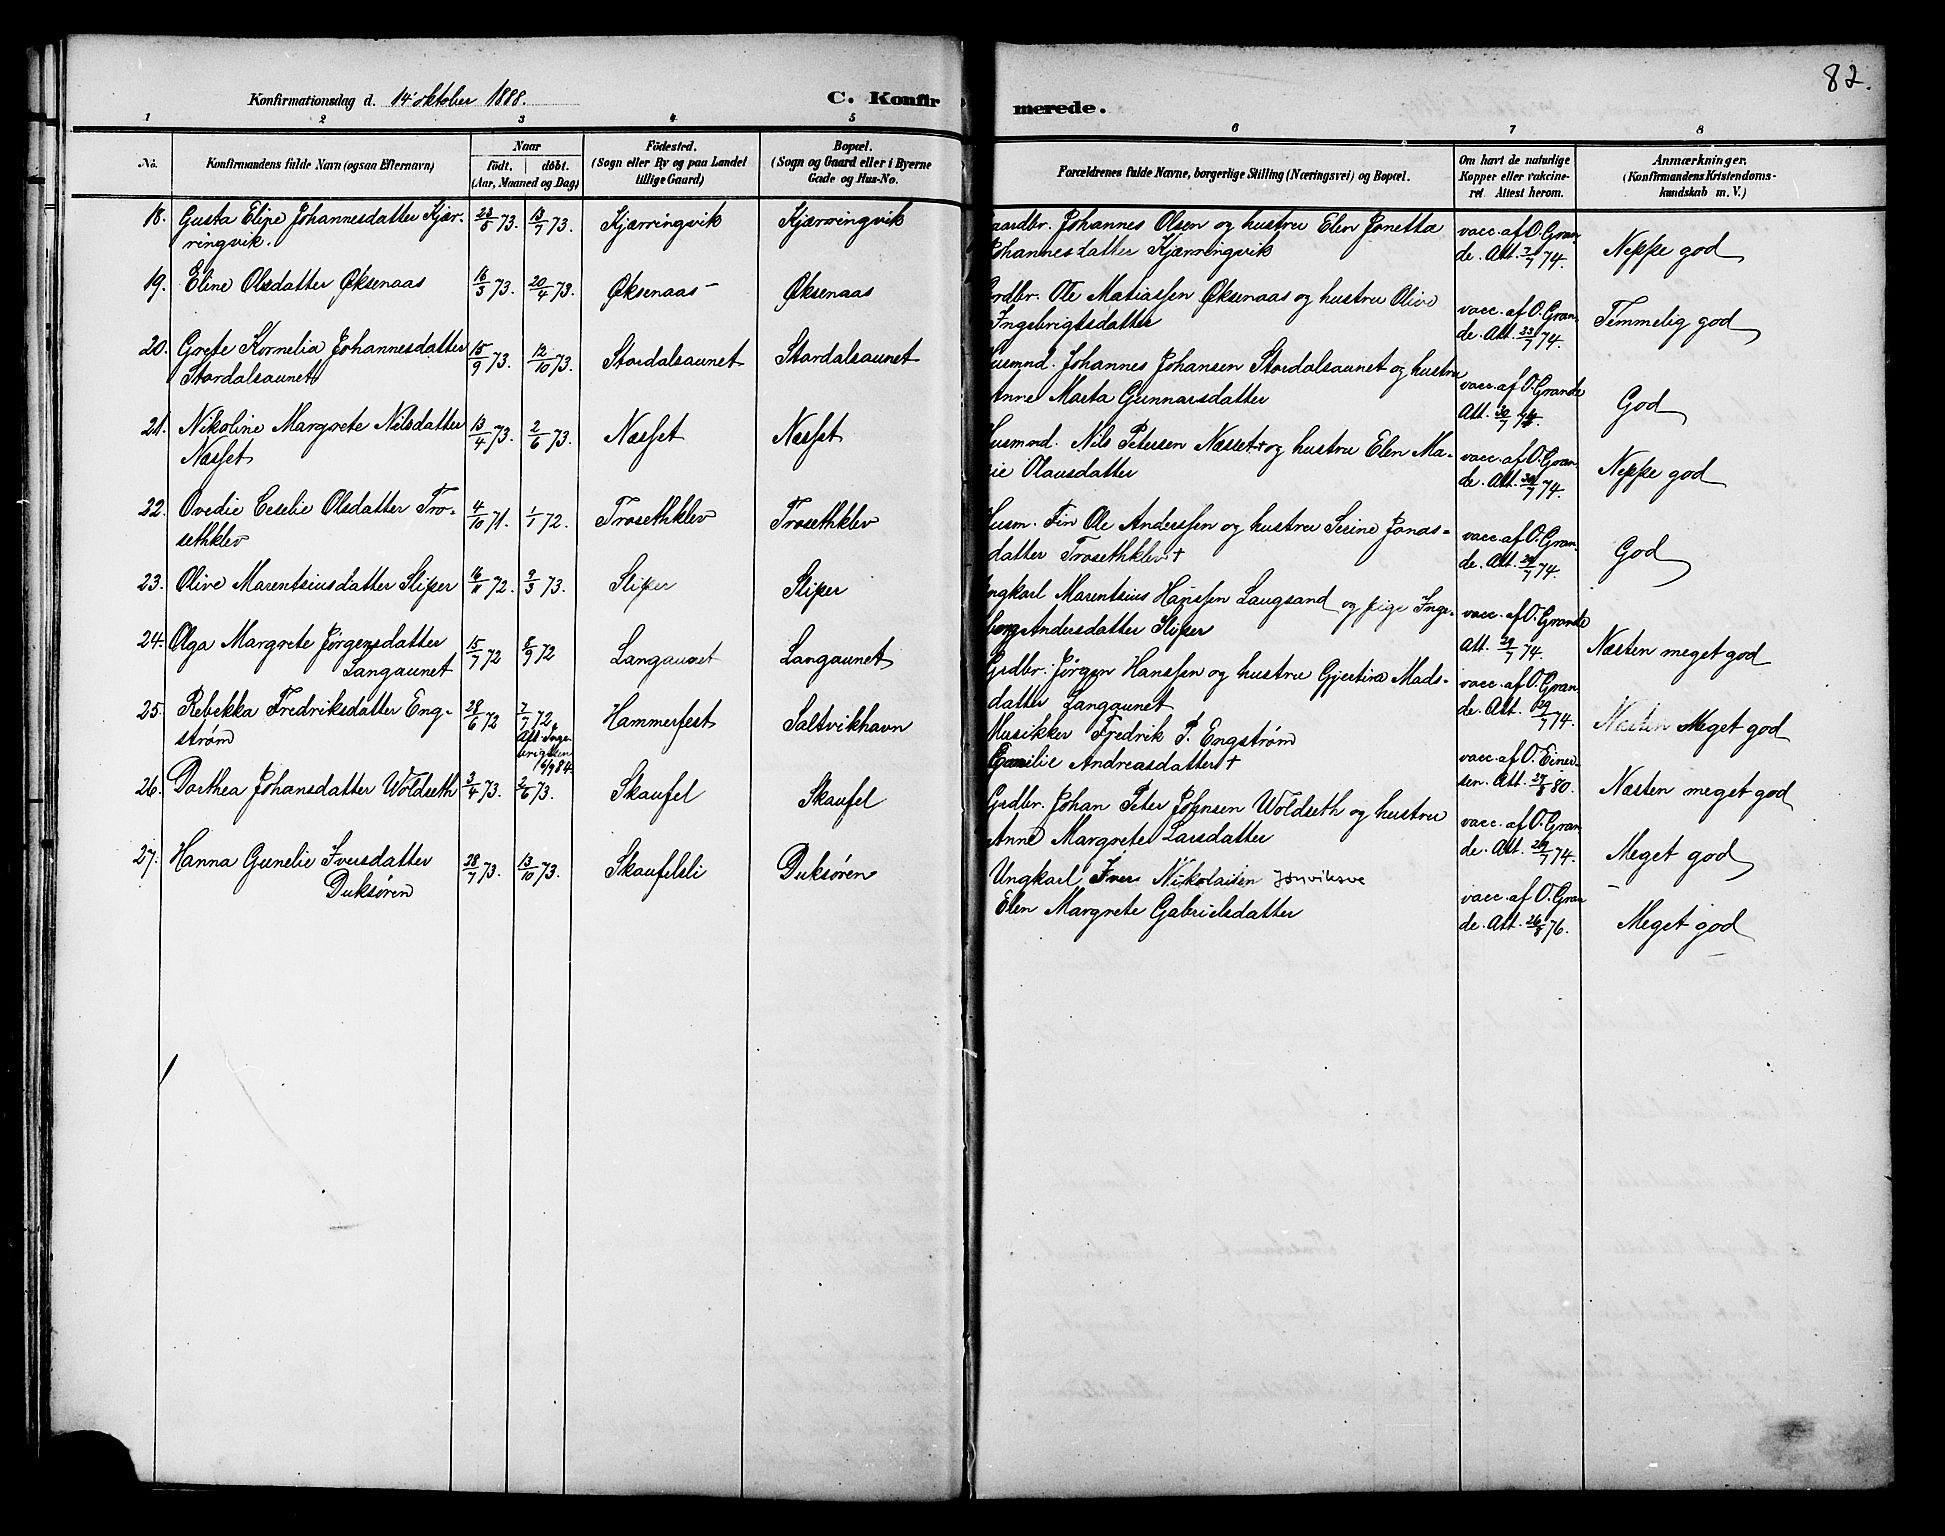 82.
Konfirmationsdag d. 14 oktober 1888.
C. Konfir
merede.
1 2 3 4 5 6 7 8
No.
Konfirmandens fulde Navn (ogsaa Efternavn)
Naar
födt, döbt.
(Aar, Maaned og Dag)
Födested.
(Sogn eller By og paa Landet
tillige Gaard)
Bopæl.
(Sogn og Gaard eller i Byerne
Gade og Hus-No.
Forældrenes fulde Navne, borgerlige Stilling (Næringsvei) og Bopæl.
Om havt de naturlige
Kopper eller vakcine-
ret. Attest herom.
Anmærkninger.
(Konfirmandens Kristendoms-
kundskab m. V.)
18. Gusta Eline Johannesdatter Kjær- 23/5 73. 13/7 73. Kjærringvik Kjærringvik
ringvik.
aardbr. Johannes Olsen og hustru Elen Jonetta
Johannesdatter Kjærringvik
vacc. af O. Gran-
de. Att. 2/7 74.
Neppe god
19. Eline Olsdatter Øksenaas 16/3 73. 20/4 73. Øksenaas Øksenaas
Grdbr. Ole Matiassen Øksenaas og hustru Olive
Ingebrigtsdatter
vacc. af O. Gran-
de. Att. 23/7 74.
Temmelig god
20. Grete Kornelia Johannesdatter 15/9 73. 12/10 73. Stordalsaunet Stordalsaunet
Stordalsaunet
Husmnd. Johannes Johansen Stordalsaunet og hustru
Anne Marta Gunnarsdatter
vacc. af O. Grande
Att. 30/7
God
21. Nikoline Margrete Nilsdatter 13/4 73. 2/6 73. Næsset Næsset
Næsset
Husmnd. Nils Petersen Næsset + og hustru Elen Ma-
rie Olausdatter
vacc. af O. Gran-
de. Att. 30/7 74.
Neppe god
22. Ovedie Ceselie Olsdatter Tro- 4/10 71. 1/1 72. Trosethklev Trosethklev
sethklev
Husm. Fin Ole Anderssen og hustru Serine Jonas-
datter Trosethklev +
vacc. af O. Gran-
de. Att. 29/7 74.
God
23. Olive Marentsiusdatter Sliper 16/11 72. 9/3 73. Sliper Sliper
Ungkarl Marentsius Hanssen Laugsand og pige Inge-
borg Andersdatter Sliper
vacc. af O. Grande
Att. 29/7 74.
Næsten meget god
24. Olga Margrete Jørgensdatter 15/7 72 8/9 72 Langaunet Langaunet
Langaunet
Grdbr. Jørgen Hanssen og hustru Gjertine Mads-
datter Langaunet
vacc. af O. Gran-
de. Att. 29/7 74.
Næsten Meget god
25. Rebekka Fredriksdatter Eng- 28/6 72 7/7 72 Hammerfest Saltvikhavn
strøm
Att. Inge-
brigtsen
16/9 84.
Musikker Fredrik P. Engstrøm
Emilie Andreasdatter +
vacc. af O. Einer-
sen. Att. 27/8 80.
Næsten meget god
26. Dorthea Johansdatter Woldseth 3/4 73. 2/6 73. Skaufel Skaufel
Grdbr. Johan Peter Johnsen Woldseth og hustru
Anne Margrete Larsdatter
vacc. af O. Gran-
de. Att. 29/7 74.
Meget god
27. Hanna Gunelie Iversdatter 28/7 73. 13/10 73. Skaufelsli Duksøren
Duksøren
Ungkarl Iver Nikolaisen
Elen Margrete Gabrielsdatter
vacc. af O. Gran-
de. Att. 26/8 76.
Meget god